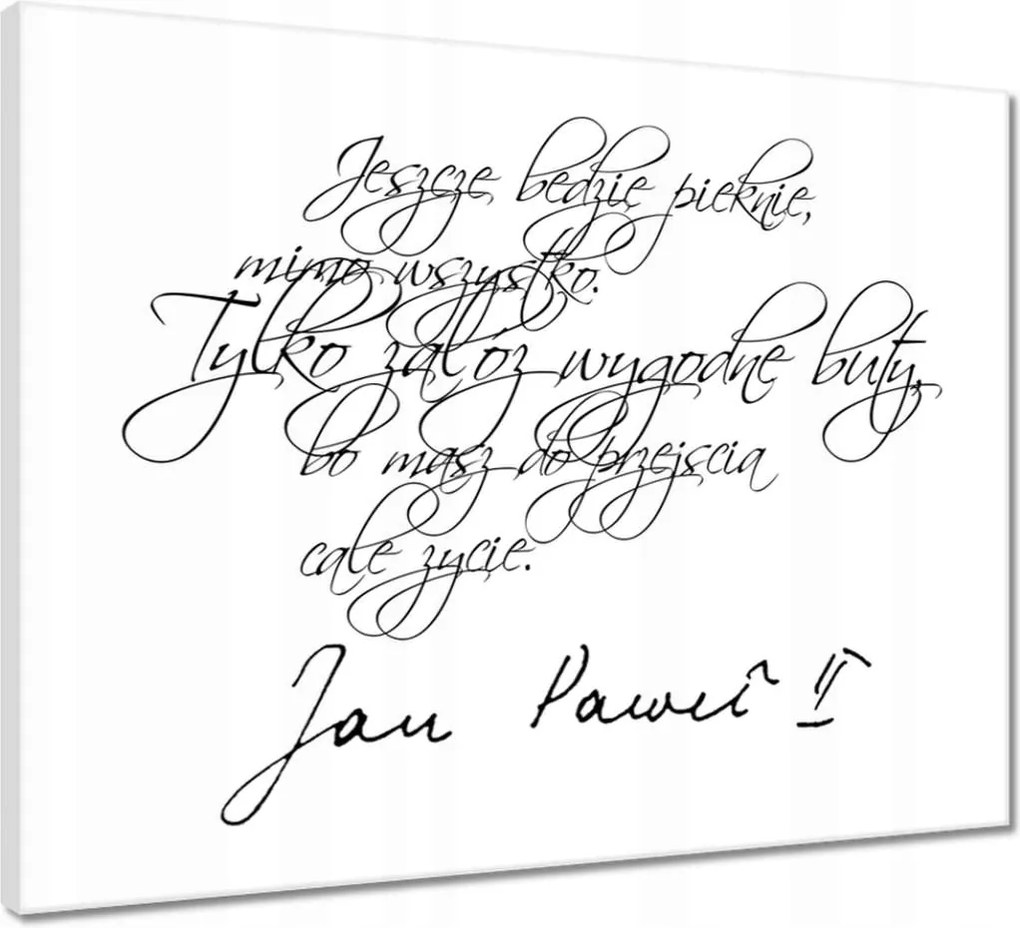 Jeszcze będzie pieknie,
mimo wszystko.
Tylko załóż wygodne buty,
bo masz do przejscia
całe zycie.
Jan Paweł II